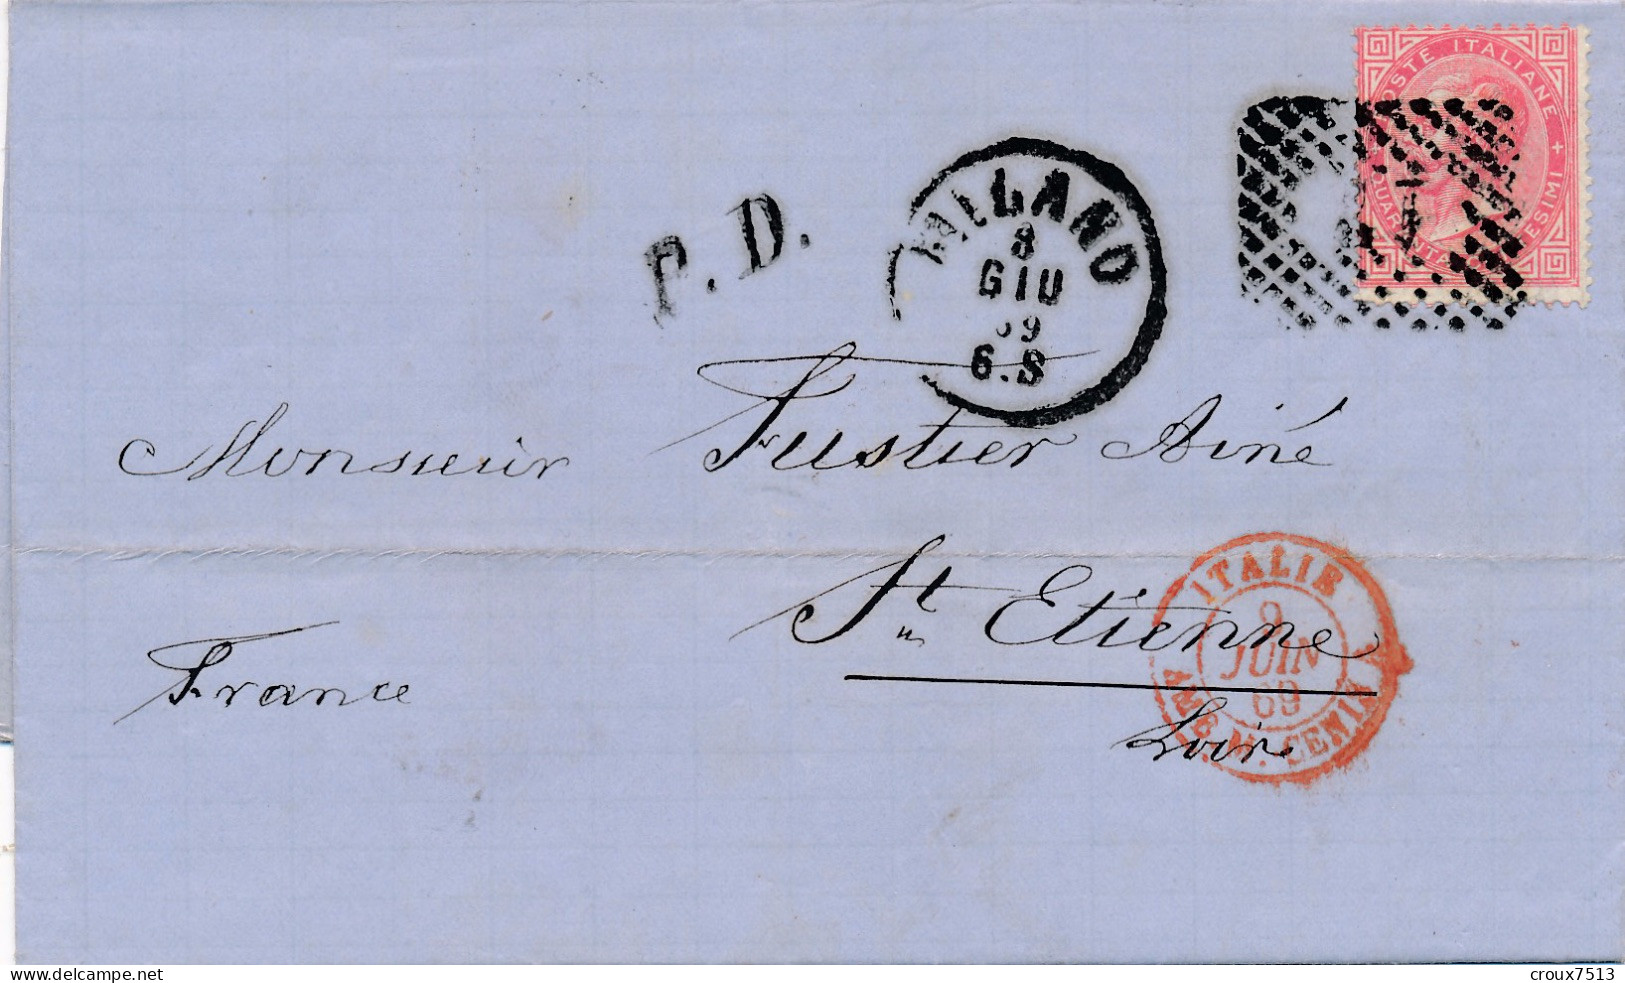 POSTE ITALIANE
QUARANTA CENTESIMI
P. D.
MILANO
8
GIU
69
6.S
Monsieur Fustier Ainé
St Etienne
Loire
France
ITALIE
9
JUIN
69
AMB. M. CENIS A
www.delcampe.net
croux7513